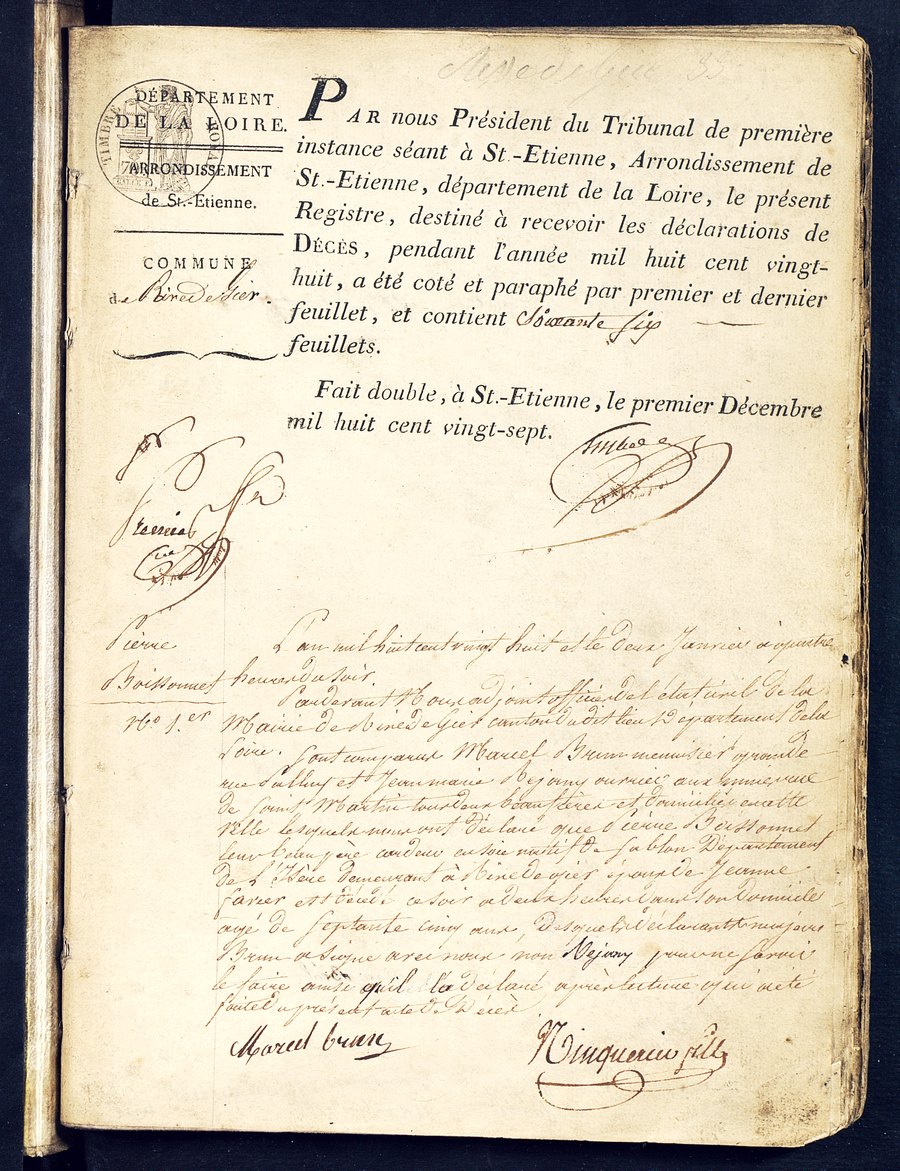 DÉPARTEMENT
DE LA LOIRE.
TIMBRE ROYAL
ARRONDISSEMENT
de St.-Etienne.
COMMUNE
de Rive de Gier.
PAR nous Président du Tribunal de première
instance séant à St.-Etienne, Arrondissement de
St.-Etienne, département de la Loire, le présent
Registre, destiné à recevoir les déclarations de
DÉCÈS, pendant l'année mil huit cent vingt-
huit, a été coté et paraphé par premier et dernier
feuillet, et contient Soixante six
feuillets.
Fait double, à St.-Etienne, le premier Décembre
mil huit cent vingt-sept.
Pierre
Boissonnet
No 1.er
L'an mil huit cent vingt huit et le deux Janvier à quatre
heures du soir.
Pardevant Nous adjoint officier de l'état civil de la
Mairie de Rive de Gier canton dudit lieu Département de la
Loire. Sont comparus Marcel Brun menuisier
rue et Jean marie Nejony ouvrier aux mines rue
de Saint Martin tous deux beaufrères et domiciliés en cette
ville lesquels nous ont déclaré que Pierre Boissonnet
leur beaupère natif de Sablon Département
de L'Isère demeurant à Rive de gier époux de Jeanne
est décédé ce soir a deux heures dans son domicile
agé de septante cinq ans, desquels déclarants majeurs
Brun a signé avec nous non Nejony pour ne savoir
le faire ainsi qu'il l'a déclaré après lecture qui a été
faite du présent acte de Décès.
Marcel brun